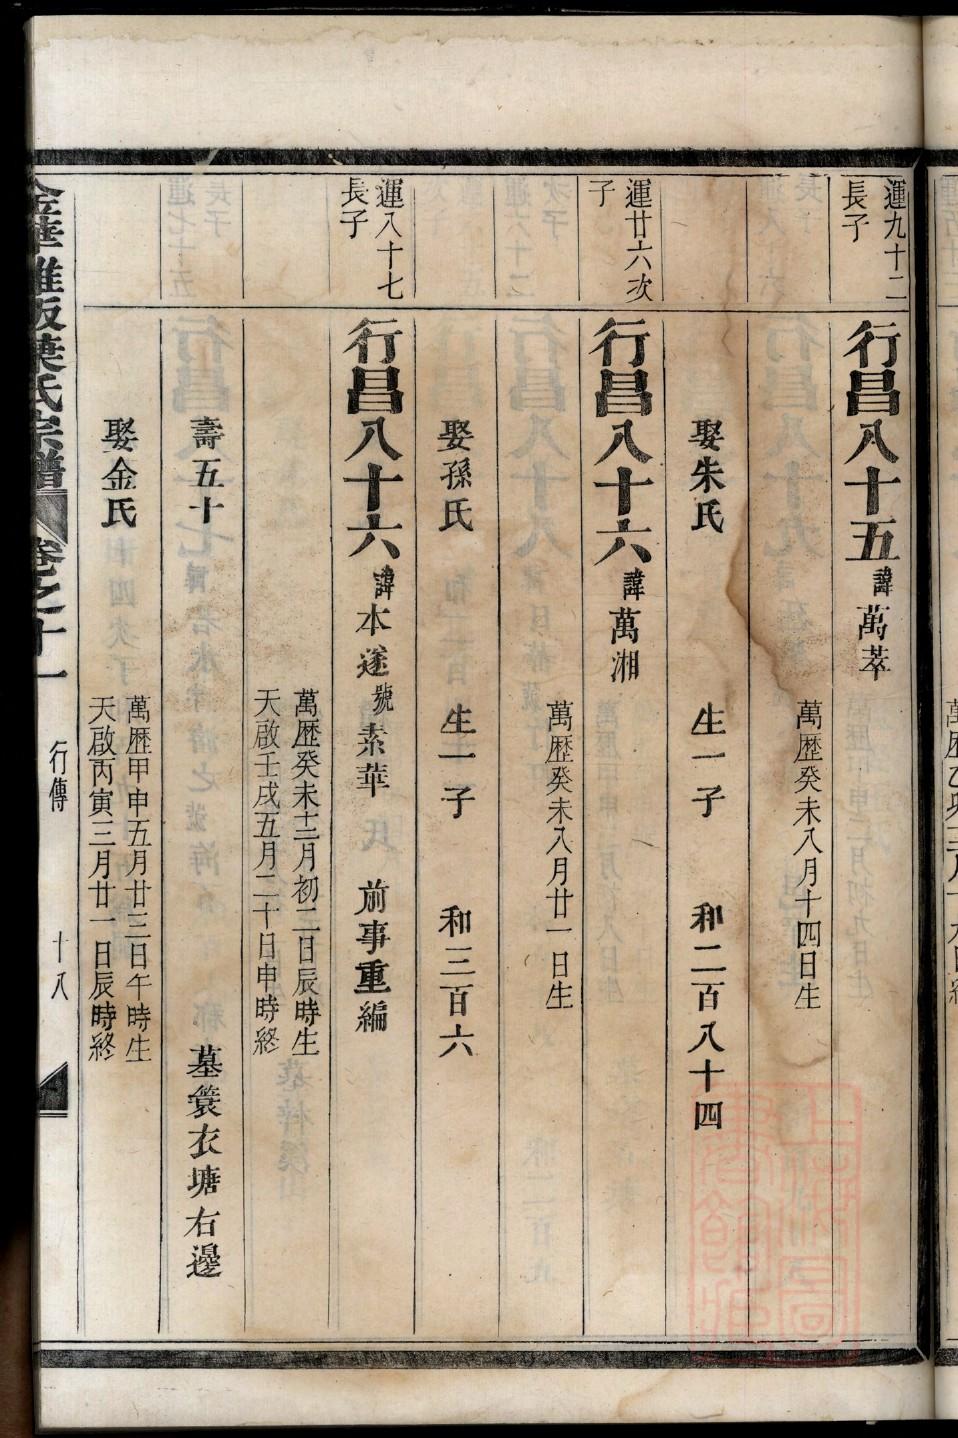 運九十二
長子
行昌八十五 諱 萬萃
萬歷癸未八月十四日生
娶朱氏 生一子 和二百八十四
運廿六次
子
行昌八十六 諱 萬湘
萬歷癸未八月廿一日生
娶孫氏 生一子 和三百六
運八十七
長子
行昌八十六 諱 本遂 號 素華 前事重編
萬歷癸未十二月初二日辰時生
天啟壬戌五月二十日申時終
壽五十 墓簑衣塘右邊
娶金氏
萬歷甲申五月廿三日午時生
天啟丙寅三月廿一日辰時終
葉氏宗譜 卷之十一 行傳 十八